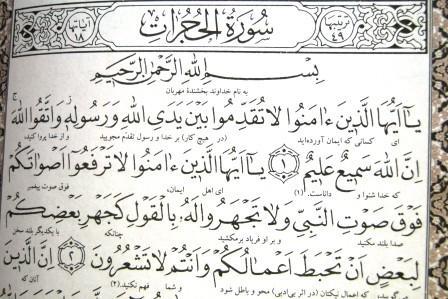 ترتيبها ٤٩ سُورَةُ الحُجُرَاتِ آياتها ١٨
بِسْمِ اللهِ الرَّحْمٰنِ الرَّحِيمِ
به نام خداوند بخشندهٔ مهربان
يَا اَيُّهَا الَّذِينَ ءَامَنُوا لَا تُقَدِّمُوا بَيْنَ يَدَيِ اللهِ وَرَسُولِهِ وَاتَّقُوا اللهَ
ای کسانی که ایمان آورده‌اید (در هیچ کار) بر خدا و رسول تقدم مجویید و از خدا پروا کنید،
اِنَّ اللهَ سَمِيعٌ عَلِيمٌ ﴿١﴾ يَا اَيُّهَا الَّذِينَ ءَامَنُوا لَا تَرْفَعُوا اَصْوَاتَكُمْ
که خدا شنوا و داناست. (١) ای اهل ایمان، فوق صوت پیغمبر
فَوْقَ صَوْتِ النَّبِيِّ وَلَا تَجْهَرُوا لَهُ بِالْقَوْلِ كَجَهْرِ بَعْضِكُمْ
صدا بلند مکنید و بر او فریاد برمکشید چنانکه با یکدیگر بلند سخن
لِبَعْضٍ اَنْ تَحْبَطَ اَعْمَالُكُمْ وَاَنْتُمْ لَا تَشْعُرُونَ ﴿٢﴾ اِنَّ الَّذِينَ
می‌گویید که اعمال نیکتان (در اثر بی‌ادبی) محو و باطل شود و شما فهم نکنید. (٢) آنان که